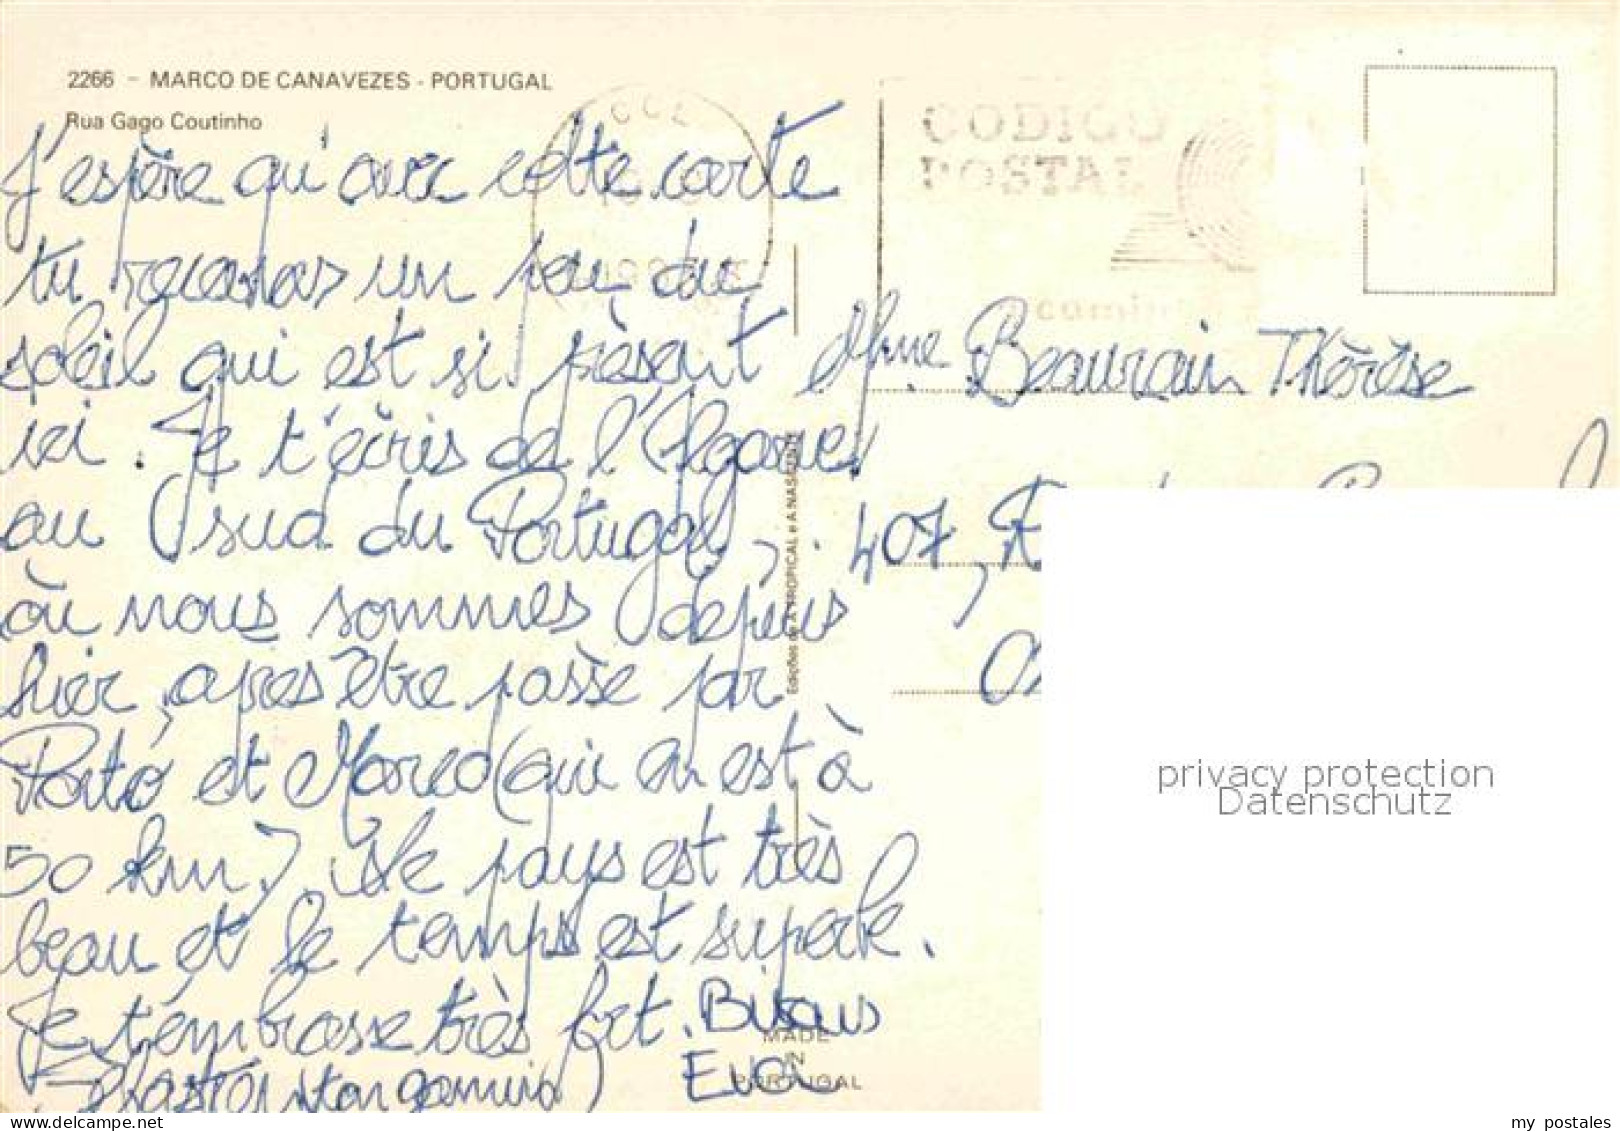 2266 - MARCO DE CANAVEZES - PORTUGAL
Rua Gago Coutinho
CODIGO
POSTAL
J'espère qu'avec cette carte
tu recevras un peu du
soleil qui est si présent
ici. Je t'écris de l'Algarve
au sud du Portugal,
où nous sommes depuis
hier, après être passé par
Porto et Marco (qui en est à
50 km). Le pays est très
beau et le temps est superbe.
Je t'embrasse très fort. Bisous
Eva
Mme Beaurain Thérèse
407,
Edições de A TROPICAL e A NASCENTE
MADE
IN
PORTUGAL
privacy protection
Datenschutz
my postales